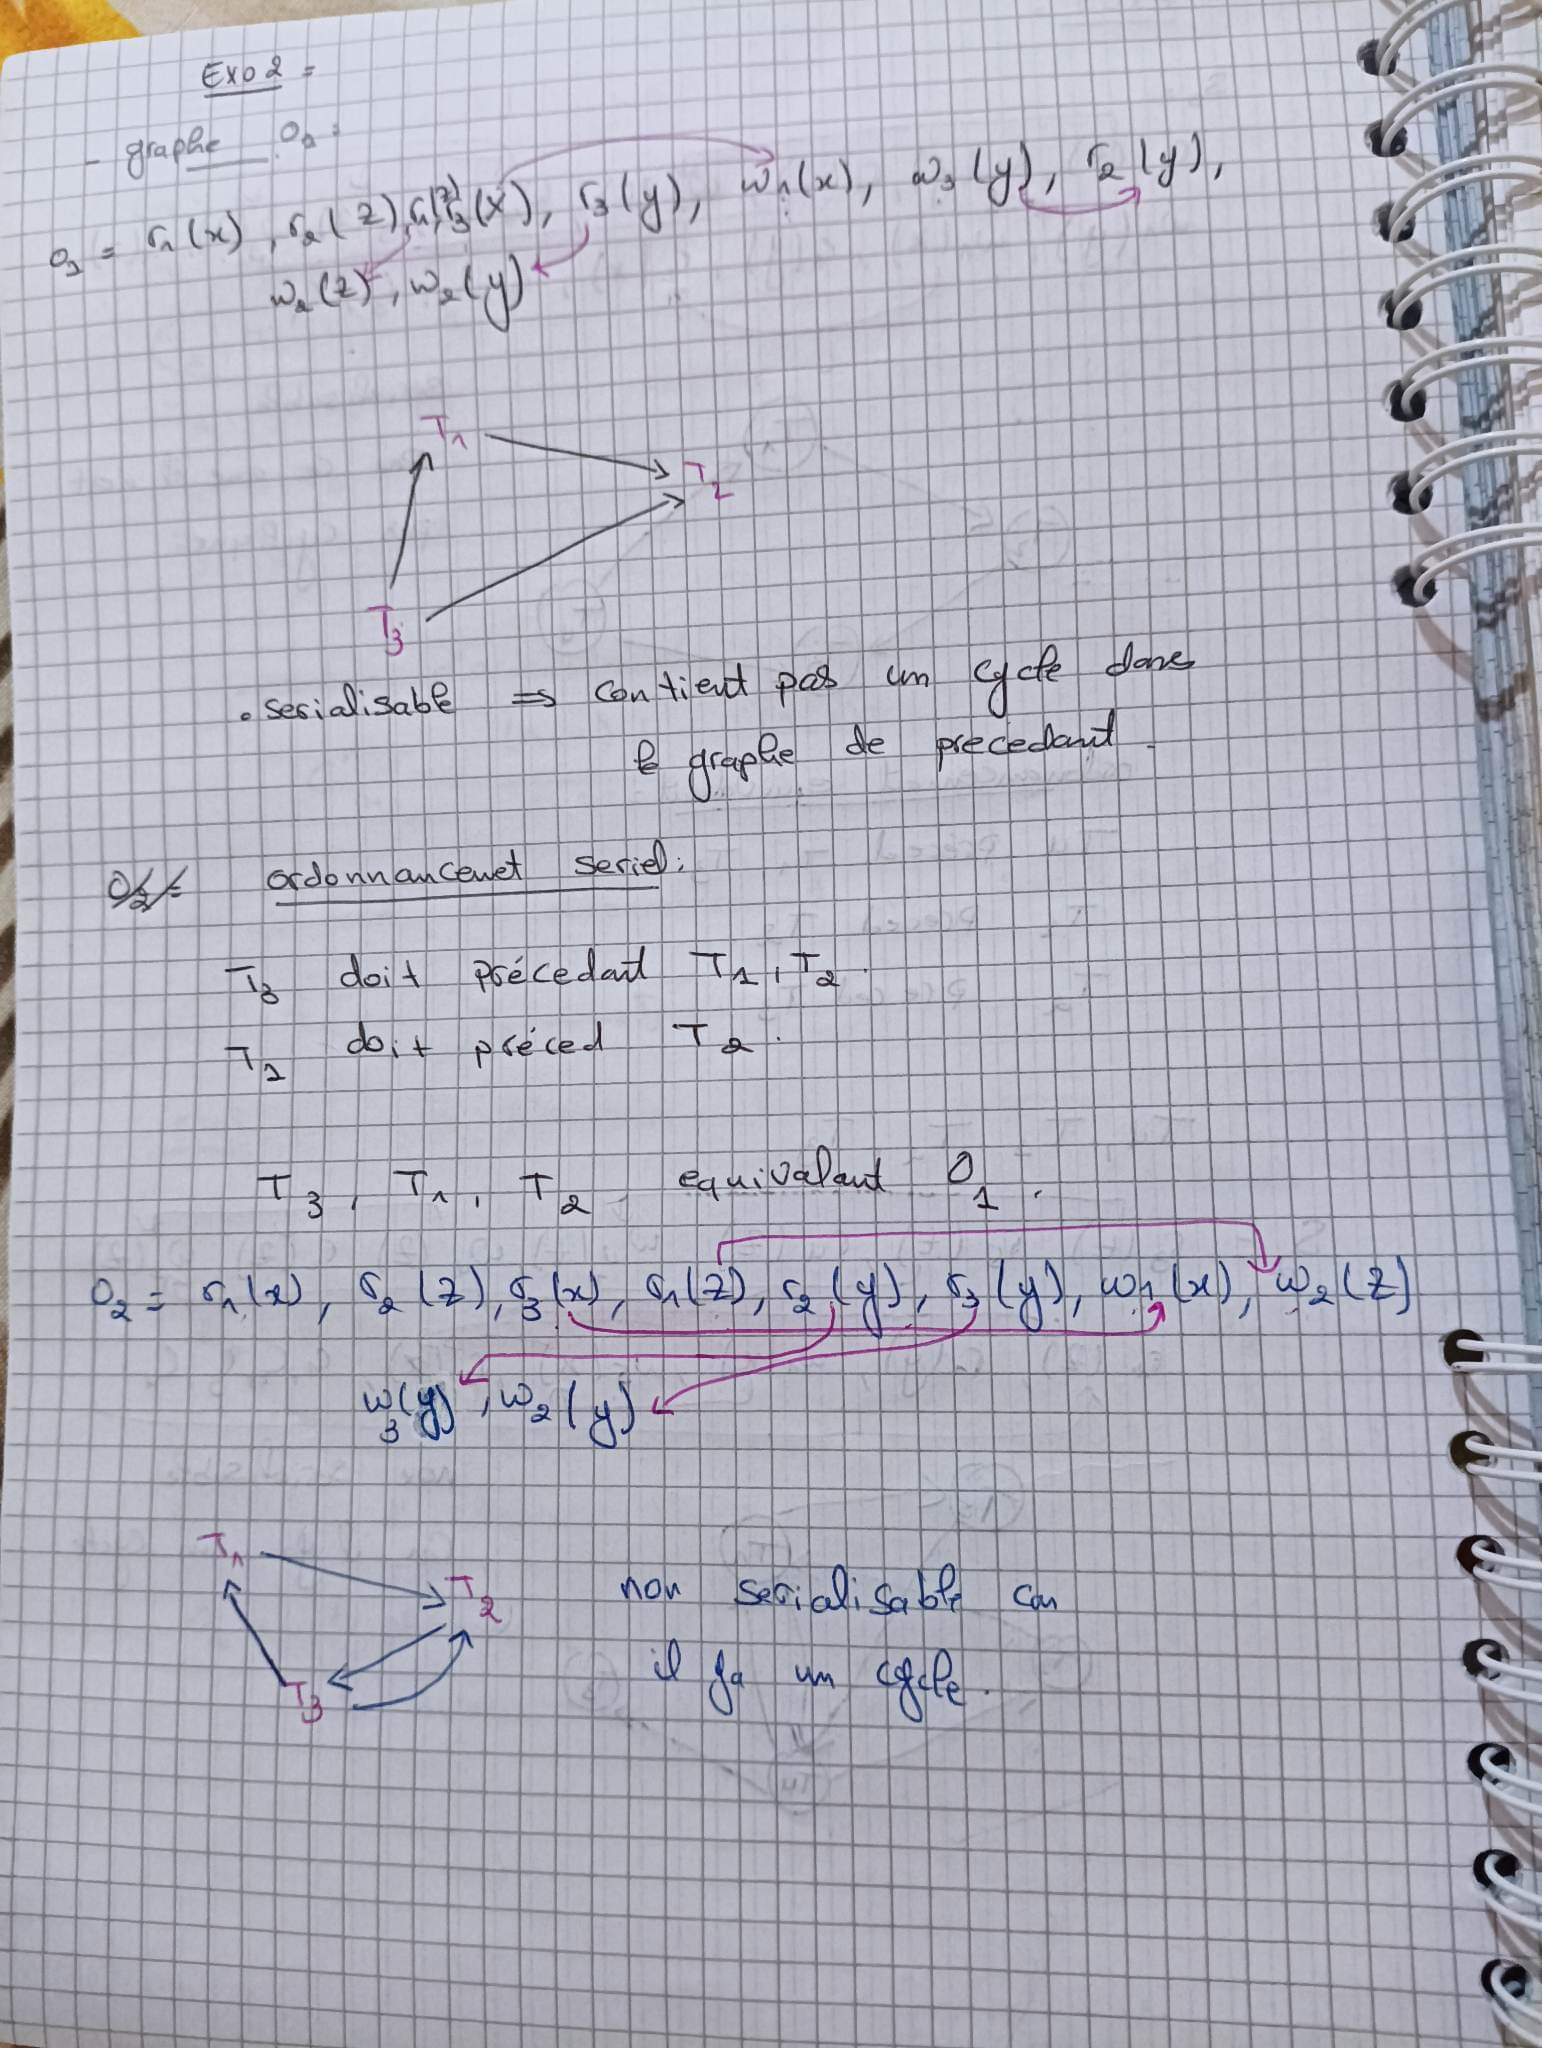 Exo 2 =
- graphe O1 =
O1 = r1(x), r2(z), r1(z) r3(x), r3(y), w1(x), w3(y), r2(y),
w2(z), w2(y)
T1
T2
T3
. serialisable => contient pas un cycle dans
le graphe de precedant.
ordonnancemet seriel:
T3 doit précedant T1, T2.
T1 doit préced T2.
T3, T1, T2 equivalant O1.
O2 = r1(x), r2(z), r3(x), r1(z), r2(y), r3(y), w1(x), w2(z)
w3(y), w2(y)
T1
T2 non serialisable car
T3 il ya un cycle.